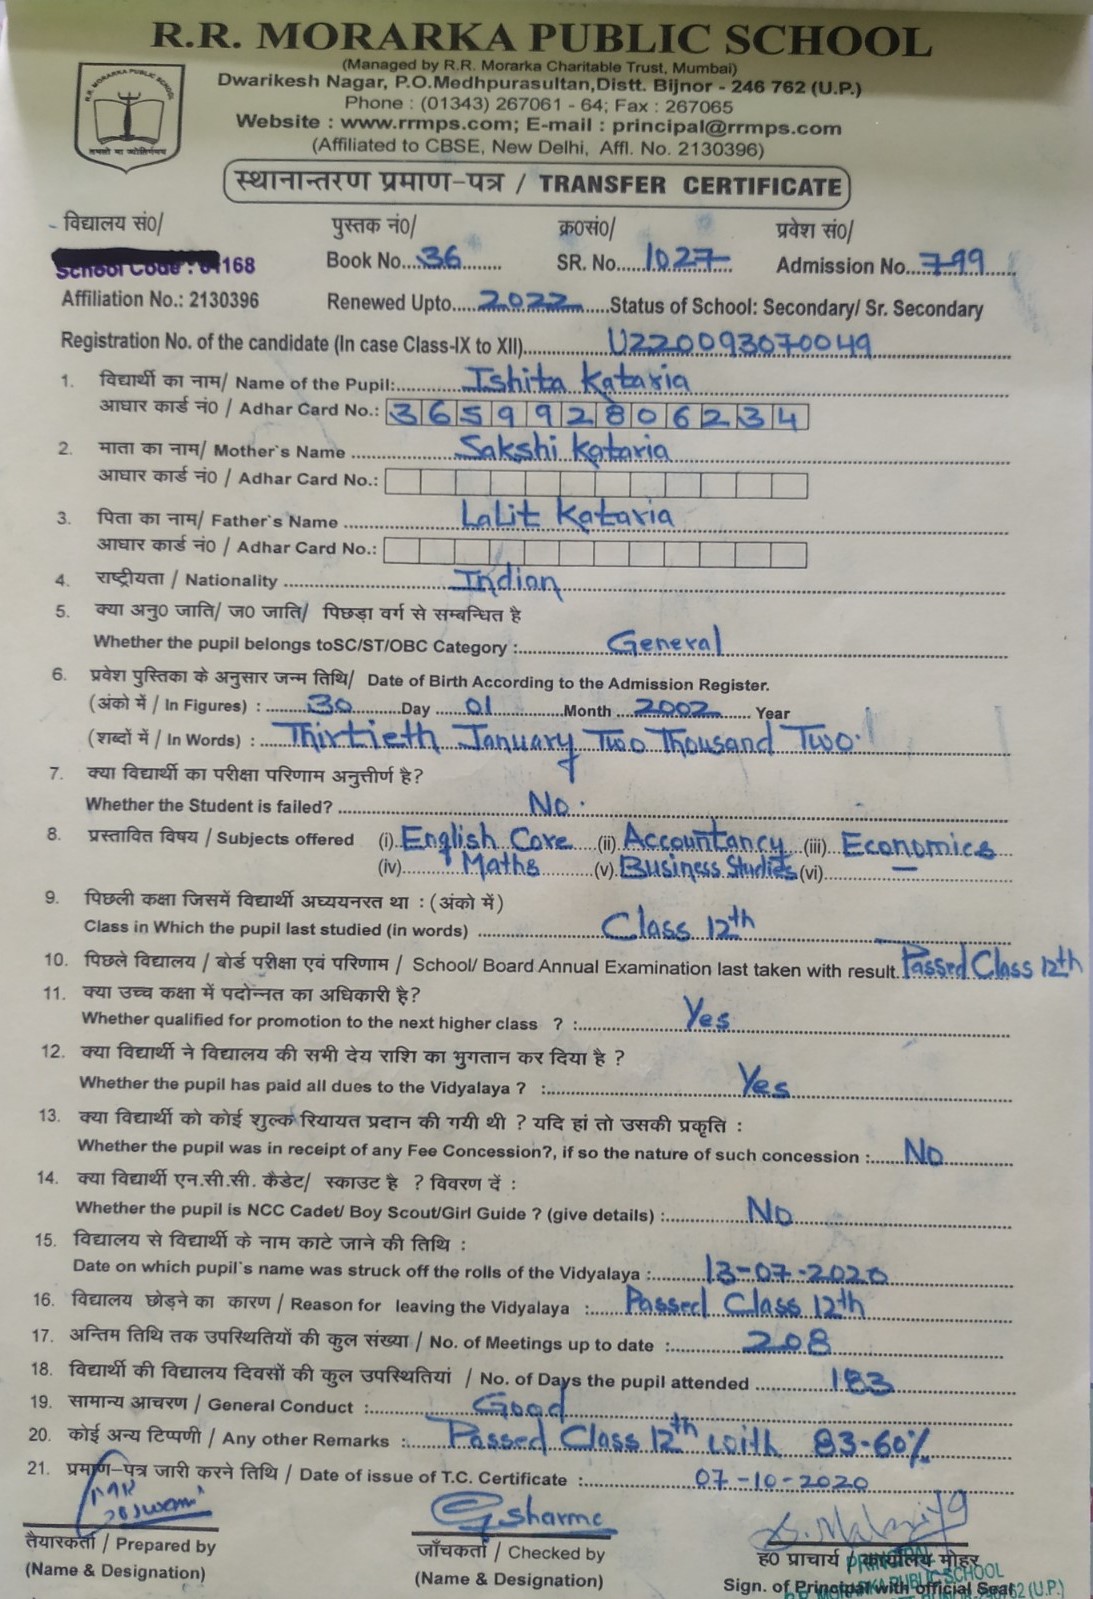 R.R. MORARKA PUBLIC SCHOOL
(Managed by R.R. Morarka Charitable Trust, Mumbai)
Dwarikesh Nagar, P.O.Medhpurasultan,Distt. Bijnor - 246 762 (U.P.)
Phone : (01343) 267061 - 64; Fax : 267065
Website : www.rrmps.com; E-mail : principal@rrmps.com
(Affiliated to CBSE, New Delhi, Affl. No. 2130396)
R.R. MORARKA PUBLIC SCHOOL
तमसो मा ज्योतिर्गमय
स्थानान्तरण प्रमाण-पत्र / TRANSFER CERTIFICATE
विद्यालय सं0/ पुस्तक नं0/ क्र0सं0/ प्रवेश सं0/
School Code : 04168 Book No....36........ SR. No.....1027.... Admission No...799....
Affiliation No.: 2130396 Renewed Upto.....2022.....Status of School: Secondary/ Sr. Secondary
Registration No. of the candidate (In case Class-IX to XII)..........U220093070049..........
1. विद्यार्थी का नाम/ Name of the Pupil:..........Ishita Kataria..........
आधार कार्ड नं0 / Adhar Card No.: 365992806234
2. माता का नाम/ Mother`s Name ..........Sakshi Kataria..........
आधार कार्ड नं0 / Adhar Card No.:
3. पिता का नाम/ Father`s Name ..........Lalit Kataria..........
आधार कार्ड नं0 / Adhar Card No.:
4. राष्ट्रीयता / Nationality ..........Indian..........
5. क्या अनु0 जाति/ ज0 जाति/ पिछड़ा वर्ग से सम्बन्धित है
Whether the pupil belongs toSC/ST/OBC Category :..........General..........
6. प्रवेश पुस्तिका के अनुसार जन्म तिथि/ Date of Birth According to the Admission Register.
(अंको में / In Figures) : ........30........Day .....01..........Month ....2002..... Year
(शब्दों में / In Words) : ....Thirtieth January Two Thousand Two.
7. क्या विद्यार्थी का परीक्षा परिणाम अनुत्तीर्ण है?
Whether the Student is failed? ..........No...........
8. प्रस्तावित विषय / Subjects offered (i) English Core (ii) Accountancy (iii) Economics
(iv) Maths (v) Business Studies (vi) —
9. पिछली कक्षा जिसमें विद्यार्थी अघ्ययनरत था : (अंको में)
Class in Which the pupil last studied (in words) ..........Class 12th..........
10. पिछले विद्यालय / बोर्ड परीक्षा एवं परिणाम / School/ Board Annual Examination last taken with result. Passed Class 12th
11. क्या उच्च कक्षा में पदोन्नत का अधिकारी है?
Whether qualified for promotion to the next higher class ? :..........Yes..........
12. क्या विद्यार्थी ने विद्यालय की सभी देय राशि का भुगतान कर दिया है ?
Whether the pupil has paid all dues to the Vidyalaya ? :..........Yes..........
13. क्या विद्यार्थी को कोई शुल्क रियायत प्रदान की गयी थी ? यदि हां तो उसकी प्रकृति :
Whether the pupil was in receipt of any Fee Concession?, if so the nature of such concession :......No..........
14. क्या विद्यार्थी एन.सी.सी. कैडेट/ स्काउट है ? विवरण दें :
Whether the pupil is NCC Cadet/ Boy Scout/Girl Guide ? (give details) :..........No..........
15. विद्यालय से विद्यार्थी के नाम काटे जाने की तिथि :
Date on which pupil`s name was struck off the rolls of the Vidyalaya :......13-07-2020..........
16. विद्यालय छोड़ने का कारण / Reason for leaving the Vidyalaya :.....Passed Class 12th..........
17. अन्तिम तिथि तक उपस्थितियों की कुल संख्या / No. of Meetings up to date :..........208..........
18. विद्यार्थी की विद्यालय दिवसों की कुल उपस्थितियां / No. of Days the pupil attended ..........183..........
19. सामान्य आचरण / General Conduct :..........Good..........
20. कोई अन्य टिप्पणी / Any other Remarks :.....Passed Class 12th with 83-60%
21. प्रमाण-पत्र जारी करने तिथि / Date of issue of T.C. Certificate :..........07-10-2020..........
Gsharma
तैयारकर्ता / Prepared by जाँचकर्ता / Checked by ह0 प्राचार्य / कार्यालय मोहर
(Name & Designation) (Name & Designation) Sign. of Principal with official Seal
PRINCIPAL
R.R. MORARKA PUBLIC SCHOOL